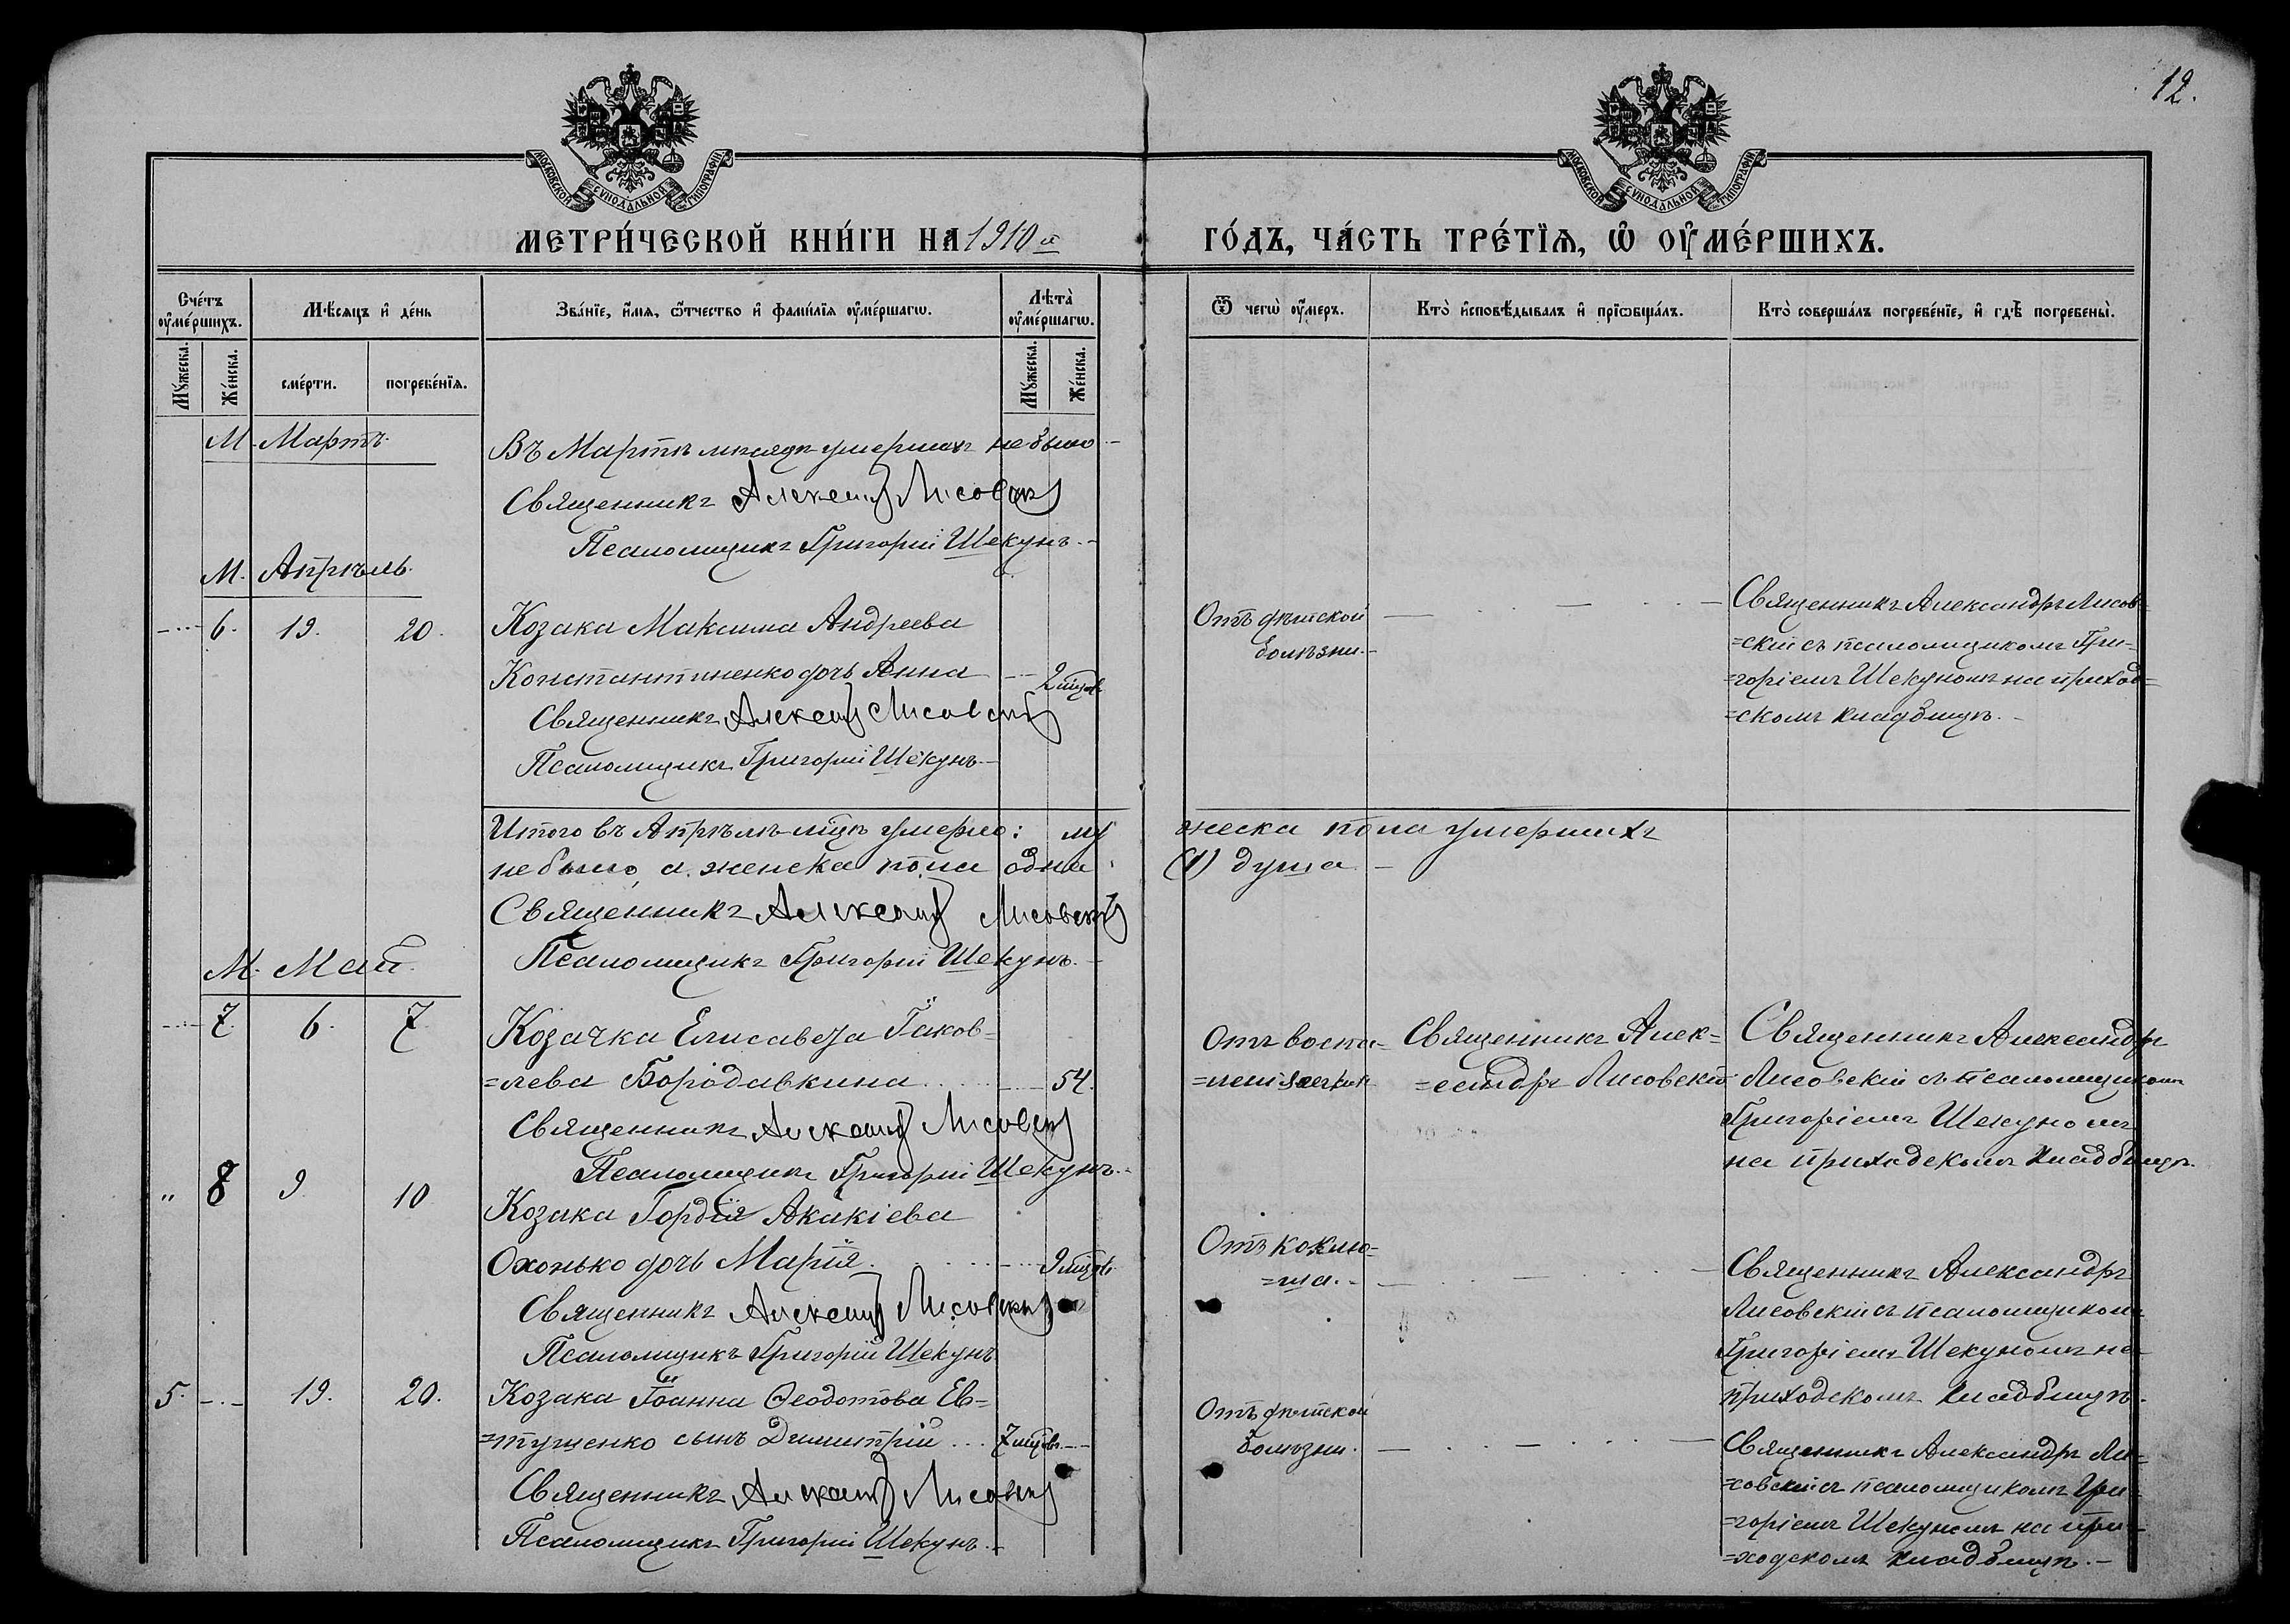 12.
МОСКОВСКОЙ СѴНОДАЛЬНОЙ ТИПОГРАФІИ
МОСКОВСКОЙ СѴНОДАЛЬНОЙ ТИПОГРАФІИ
МЕТРИ́ЧЕСКОЙ КНИ́ГИ НА 1910й ГО́ДЪ, ЧА́СТЬ ТРЕ́ТІѦ, Ѡ҆ ОУ҆МЕ́РШИХЪ.
Сче́тъ оу҆ме́ршихъ.
Мѣ́сяцъ и҆ де́нь
Зва́нїе, и҆́мя, ѻ҆́тчество и҆ фами́лїя оу҆ме́ршагѡ.
Лѣта̀ оу҆ме́ршагѡ.
Ѿ чегѡ̀ оу҆́меръ.
Кто̀ и҆сповѣ́дывалъ и҆ прїѡбща́лъ.
Кто̀ соверша́лъ погребе́нїе, и҆ гдѣ̀ погребены̀.
Мꙋ́жеска.
Же́нска.
сме́рти.
погребе́нїя.
Мꙋ́жеска.
Же́нска.
М. Мартъ.
Въ Мартѣ мѣсяцѣ умершихъ не было
Священникъ Александръ Лисовскій
Псаломщикъ Григорій Шекунъ.
М. Апрѣль.
6. 19. 20. Козака Максима Андреева
Константиненко дочь Анна 2 мцов
Священникъ Александръ Лисовскій
Псаломщикъ Григорій Шекунъ
Отъ дѣтской
болѣзни.
Священникъ Александръ Лисов=
=скій съ псаломщикомъ Гри=
=горіемъ Шекуномъ на приход=
=скомъ кладбищѣ.
Итого въ Апрѣлѣ мцѣ умерло: му жеска пола умершихъ
не было, а женска пола одна (1) душа
Священникъ Александръ Лисовскій
Псаломщикъ Григорій Шекунъ.
М. Май.
7. 6. 7. Козачка Елисавета Іаков=
=лева Бородавкина 54.
Священникъ Александръ Лисовскій
Псаломщикъ Григорій Шекунъ.
Отъ воспа=
=ленія легкихъ
Священникъ Алек=
=сандръ Лисовскій
Священникъ Александръ
Лисовскій съ псаломщикомъ
Григоріемъ Шекуномъ
на приходскомъ кладбищѣ.
" 8 9 10 Козака Гордія Акакіева
Охонько дочь Марія. 9 мцов
Священникъ Александръ Лисовскій
Псаломщикъ Григорій Шекунъ
Отъ коклю=
=ша.
Священникъ Александръ
Лисовскій съ псаломщикомъ
Григоріемъ Шекуномъ на
приходскомъ кладбищѣ.
5. 19. 20. Козака Іоанна Ѳеодотова Ев=
=тушенко сынъ Димитрій 7 мцов
Священникъ Александръ Лисовскій
Псаломщикъ Григорій Шекунъ.
Отъ дѣтской
болѣзни.
Священникъ Александръ Ли=
=совскій съ псаломщикомъ Гри=
=горіемъ Шекуномъ на при=
=ходскомъ кладбищѣ.